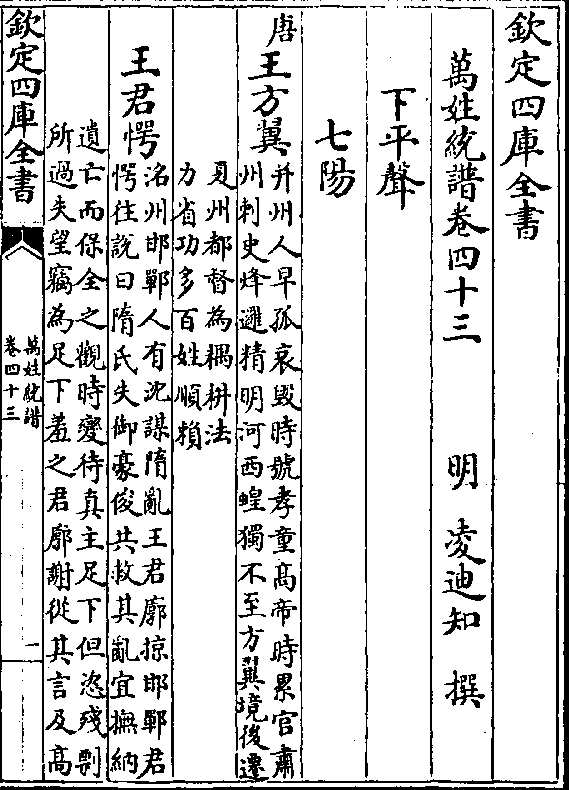 欽定四庫全書
萬姓統譜卷四十三　明　凌迪知　撰
下平聲
七陽
唐
王方翼
并州人早孤哀毀時號孝童髙帝時累官肅
州刺史烽邏精明河西蝗獨不至方翼境後遷
夏州都督為耦耕法
力省功多百姓順賴
王君愕
洺州邯鄲人有沈謀隋亂王君廓掠邯鄲君
愕往說曰隋氏失御豪俊共救其亂宜撫納
遺亡而保全之觀時變待真主足下但恣殘剽
所過失望竊為足下羞之君廓謝從其言及髙
欽定四庫全書
萬姓統譜
卷四十三
一